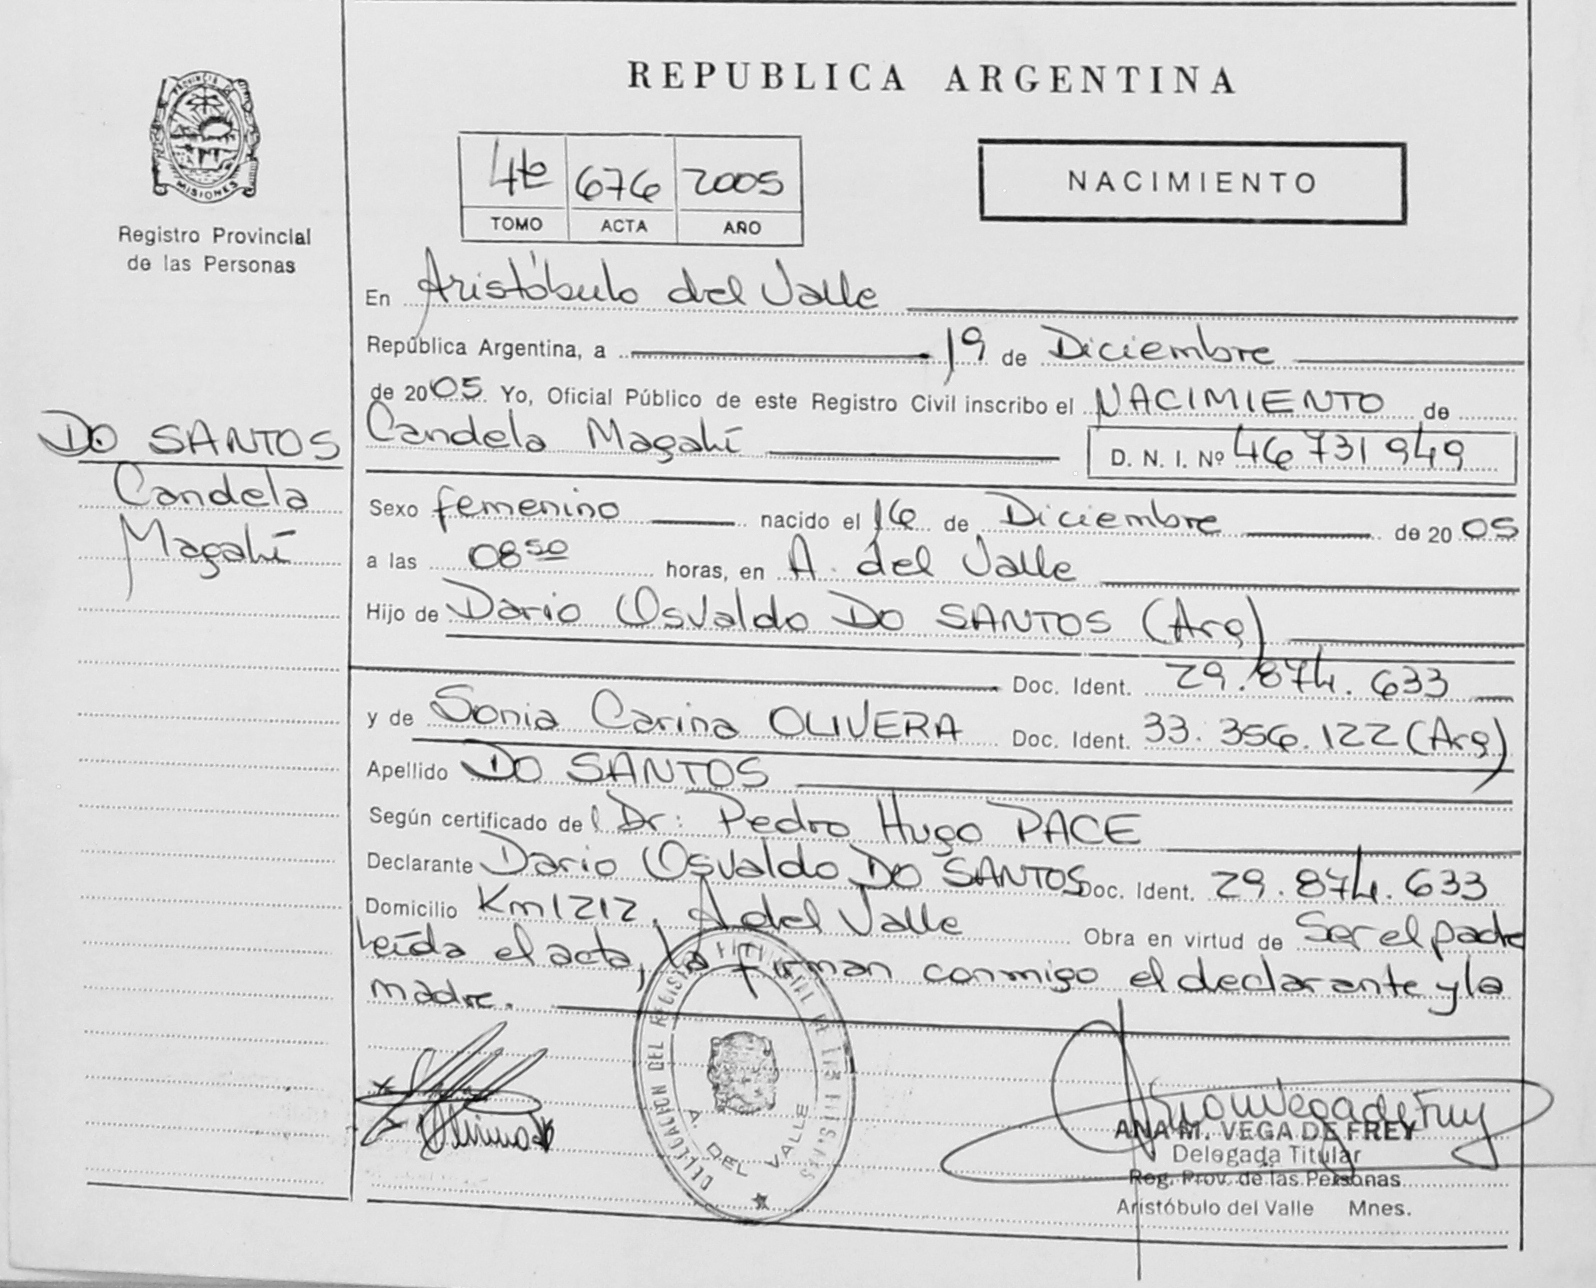 REPUBLICA ARGENTINA
MISIONES
Registro Provincial
de las Personas
4to 676 2005
TOMO ACTA AÑO
NACIMIENTO
En Aristóbulo del Valle
República Argentina, a 19 de Diciembre
de 2005 Yo, Oficial Público de este Registro Civil inscribo el NACIMIENTO de
Candela Magalí D. N. I. Nº 46 731 949
DO SANTOS
Candela
Magalí
Sexo femenino nacido el 16 de Diciembre de 2005
a las 08 50 horas, en A. del Valle
Hijo de Dario Osvaldo DO SANTOS (Arg)
Doc. Ident. 29.874.633
y de Sonia Carina OLIVERA Doc. Ident. 33.356.122 (Arg)
Apellido DO SANTOS
Según certificado del Dr: Pedro Hugo PACE
Declarante Dario Osvaldo DO SANTOS Doc. Ident. 29.874.633
Domicilio Km 1212, A del Valle Obra en virtud de Ser el padre
Leída el acta, la firman conmigo el declarante y la
madre.
DELEGACION DEL REGISTRO
A. DEL VALLE
ANA M. VEGA DE FREY
Delegada Titular
Reg. Prov. de las Personas
Aristóbulo del Valle Mnes.